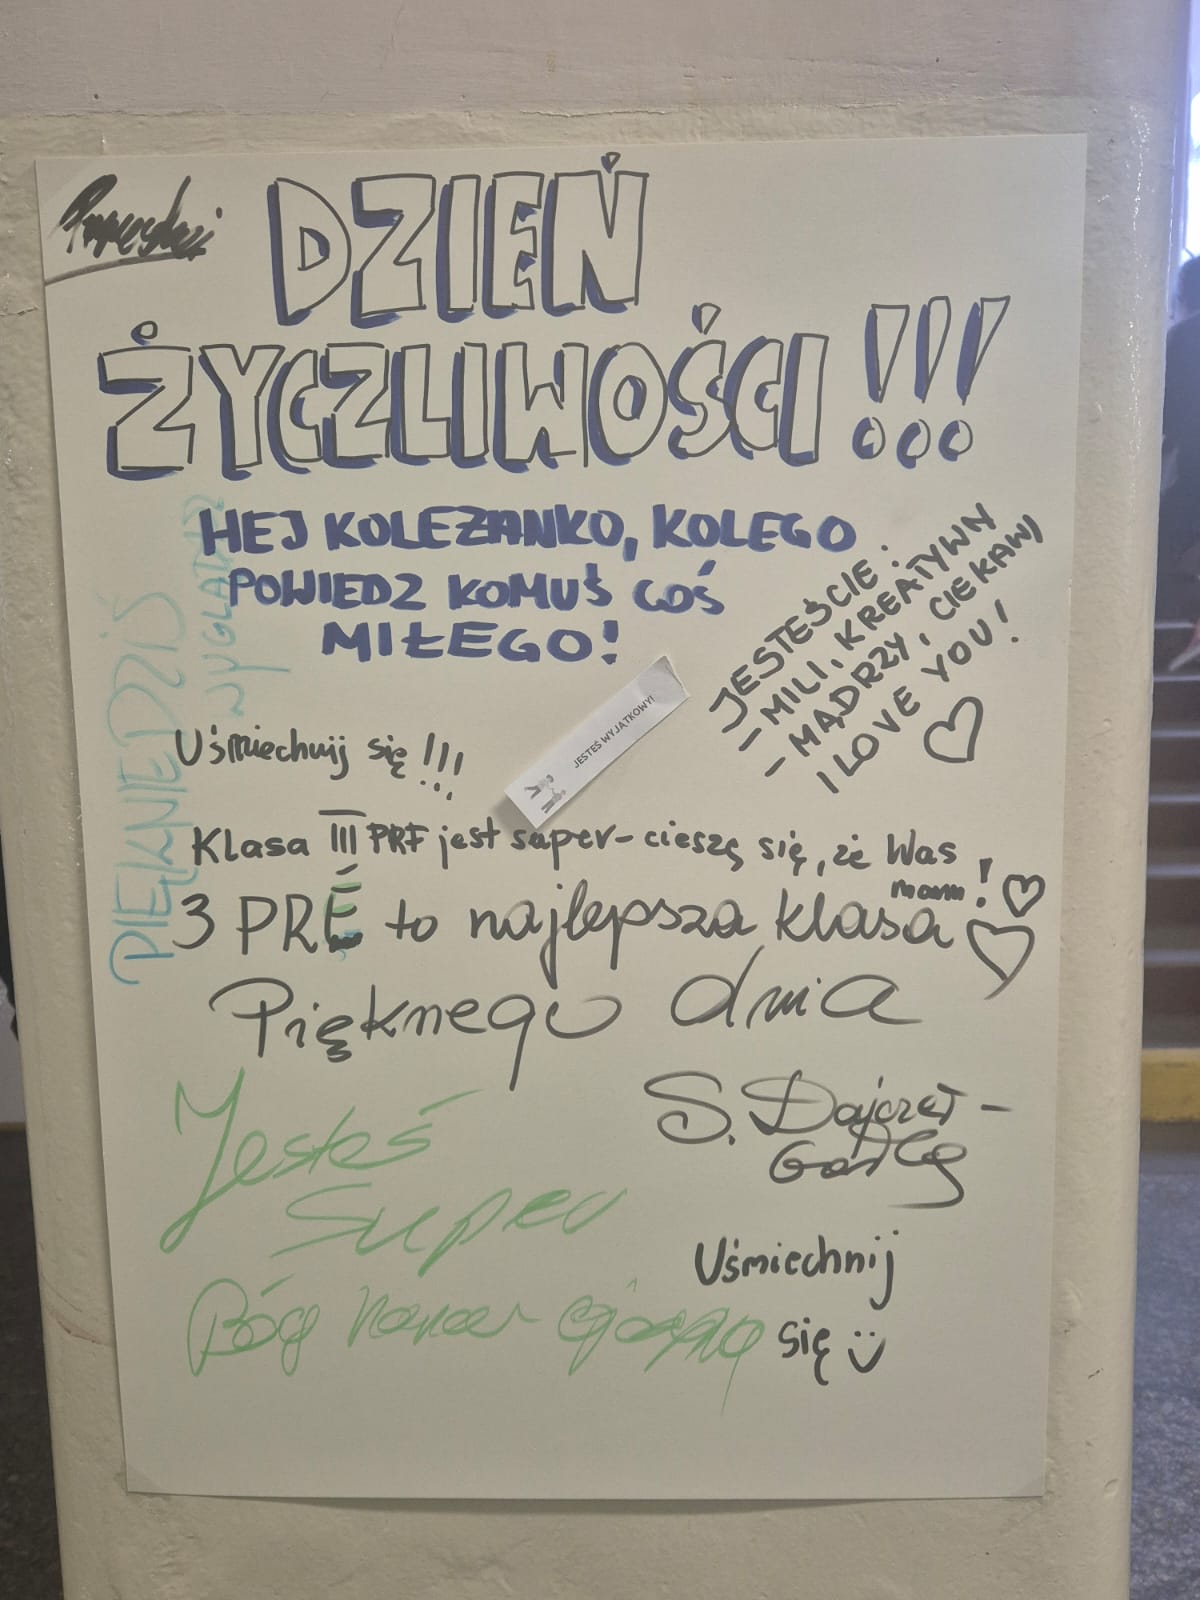 DZIEŃ
ŻYCZLIWOŚCI!!!
HEJ KOLEZANKO, KOLEGO
POWIEDZ KOMUŚ COŚ
MIŁEGO!
JESTEŚCIE:
- MILI, KREATYWNI
- MĄDRZY, CIEKAWI
I LOVE YOU!
PIĘKNIE DZIŚ
WYGLĄDASZ
Uśmiechnij się!!!
JESTEŚ WYJĄTKOWY!
Klasa III PRE jest super-cieszę się, że Was
mam!
3 PRE to najlepsza klasa
Pięknego dnia
S. Dajczer-
Jesteś
super
Uśmiechnij
się
Bóg